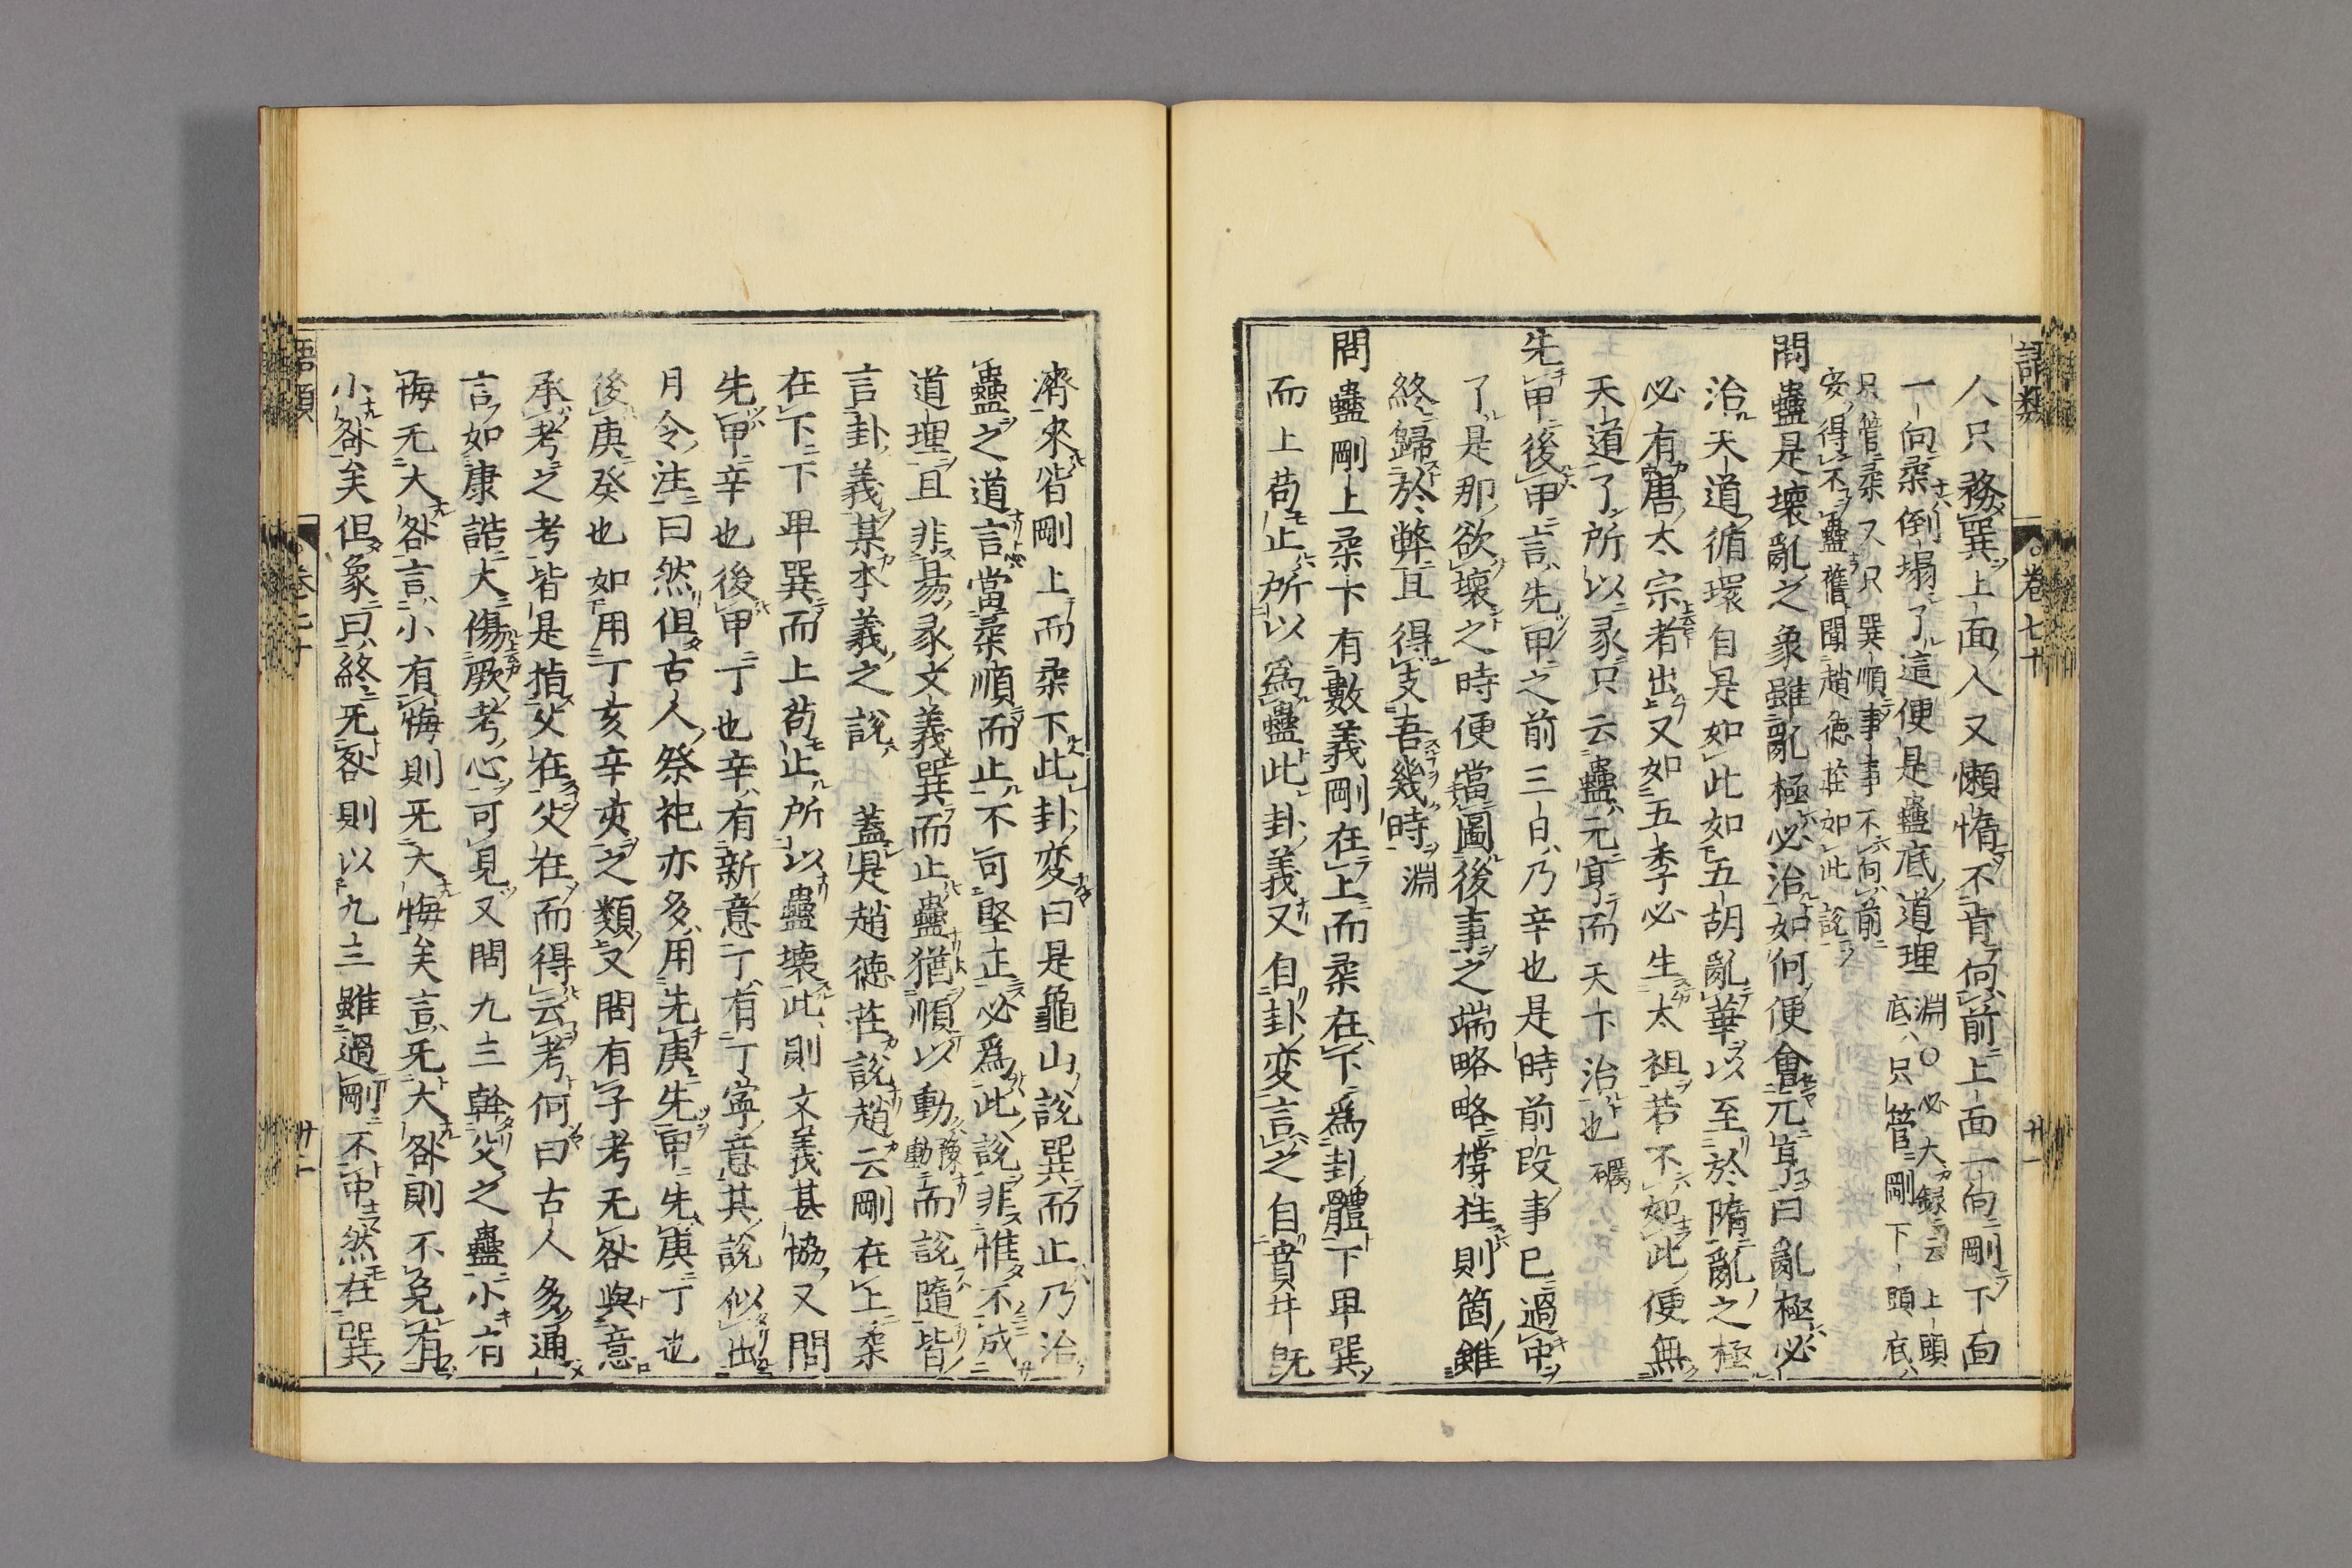 語類
○卷七十
廿一
人只務巽上面人又懶惰不肯向前上面一向剛下面
一向柔倒塌了這便是蠱底道理
淵○必大録云上頭
底只管剛下頭底
只管柔又只巽順事事不向前
安得不蠱舊聞趙德莊如此說
問蠱是壞亂之象雖亂極必治如何便會元亨曰亂極必
治天道循環自是如此如五胡亂華以至於隋亂之極
必有唐太宗者出又如五季必生太祖若不如此便無
天道了所以彖只云蠱元亨而天下治也
礪
先甲後甲言先甲之前三日乃辛也是時前段事已過中
了是那欲壞之時便當圖後事之端略略撐拄則箇雖
終歸於弊且得支吾幾時
淵
問蠱剛上柔下有數義剛在上而柔在下爲卦體下卑巽
而上苟止所以爲蠱此卦義又自卦変言之自賁井旣
濟來皆剛上而柔下此卦変曰是龜山說巽而止乃治
蠱之道言當柔順而止不可堅正必爲此說非惟不成
道理且非易彖文義巽而止蠱猶順以動
豫
動
而說隨皆
言卦義某本義之說蓋是趙德莊說趙云剛在上柔
在下下卑巽而上苟止所以蠱壞此則文義甚協又問
先甲辛也後甲丁也辛有新意丁有丁寧意其說似出
月令注曰然但古人祭祀亦多用先庚先甲先庚丁也
後庚癸也如用丁亥辛亥之類又問有子考无咎與意
承考之考皆是指父在父在而得云考何曰古人多通
言如康誥大傷厥考心可見又問九三幹父之蠱小有
悔无大咎言小有悔則无大悔矣言无大咎則不免有
小咎矣但象曰終无咎則以九三雖過剛不中然在巽
語類
卷七十
廿一